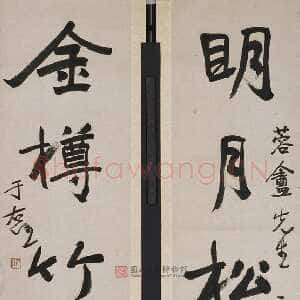 明月松
蓉盦先生
金樽竹
于右任
ShufawangCN